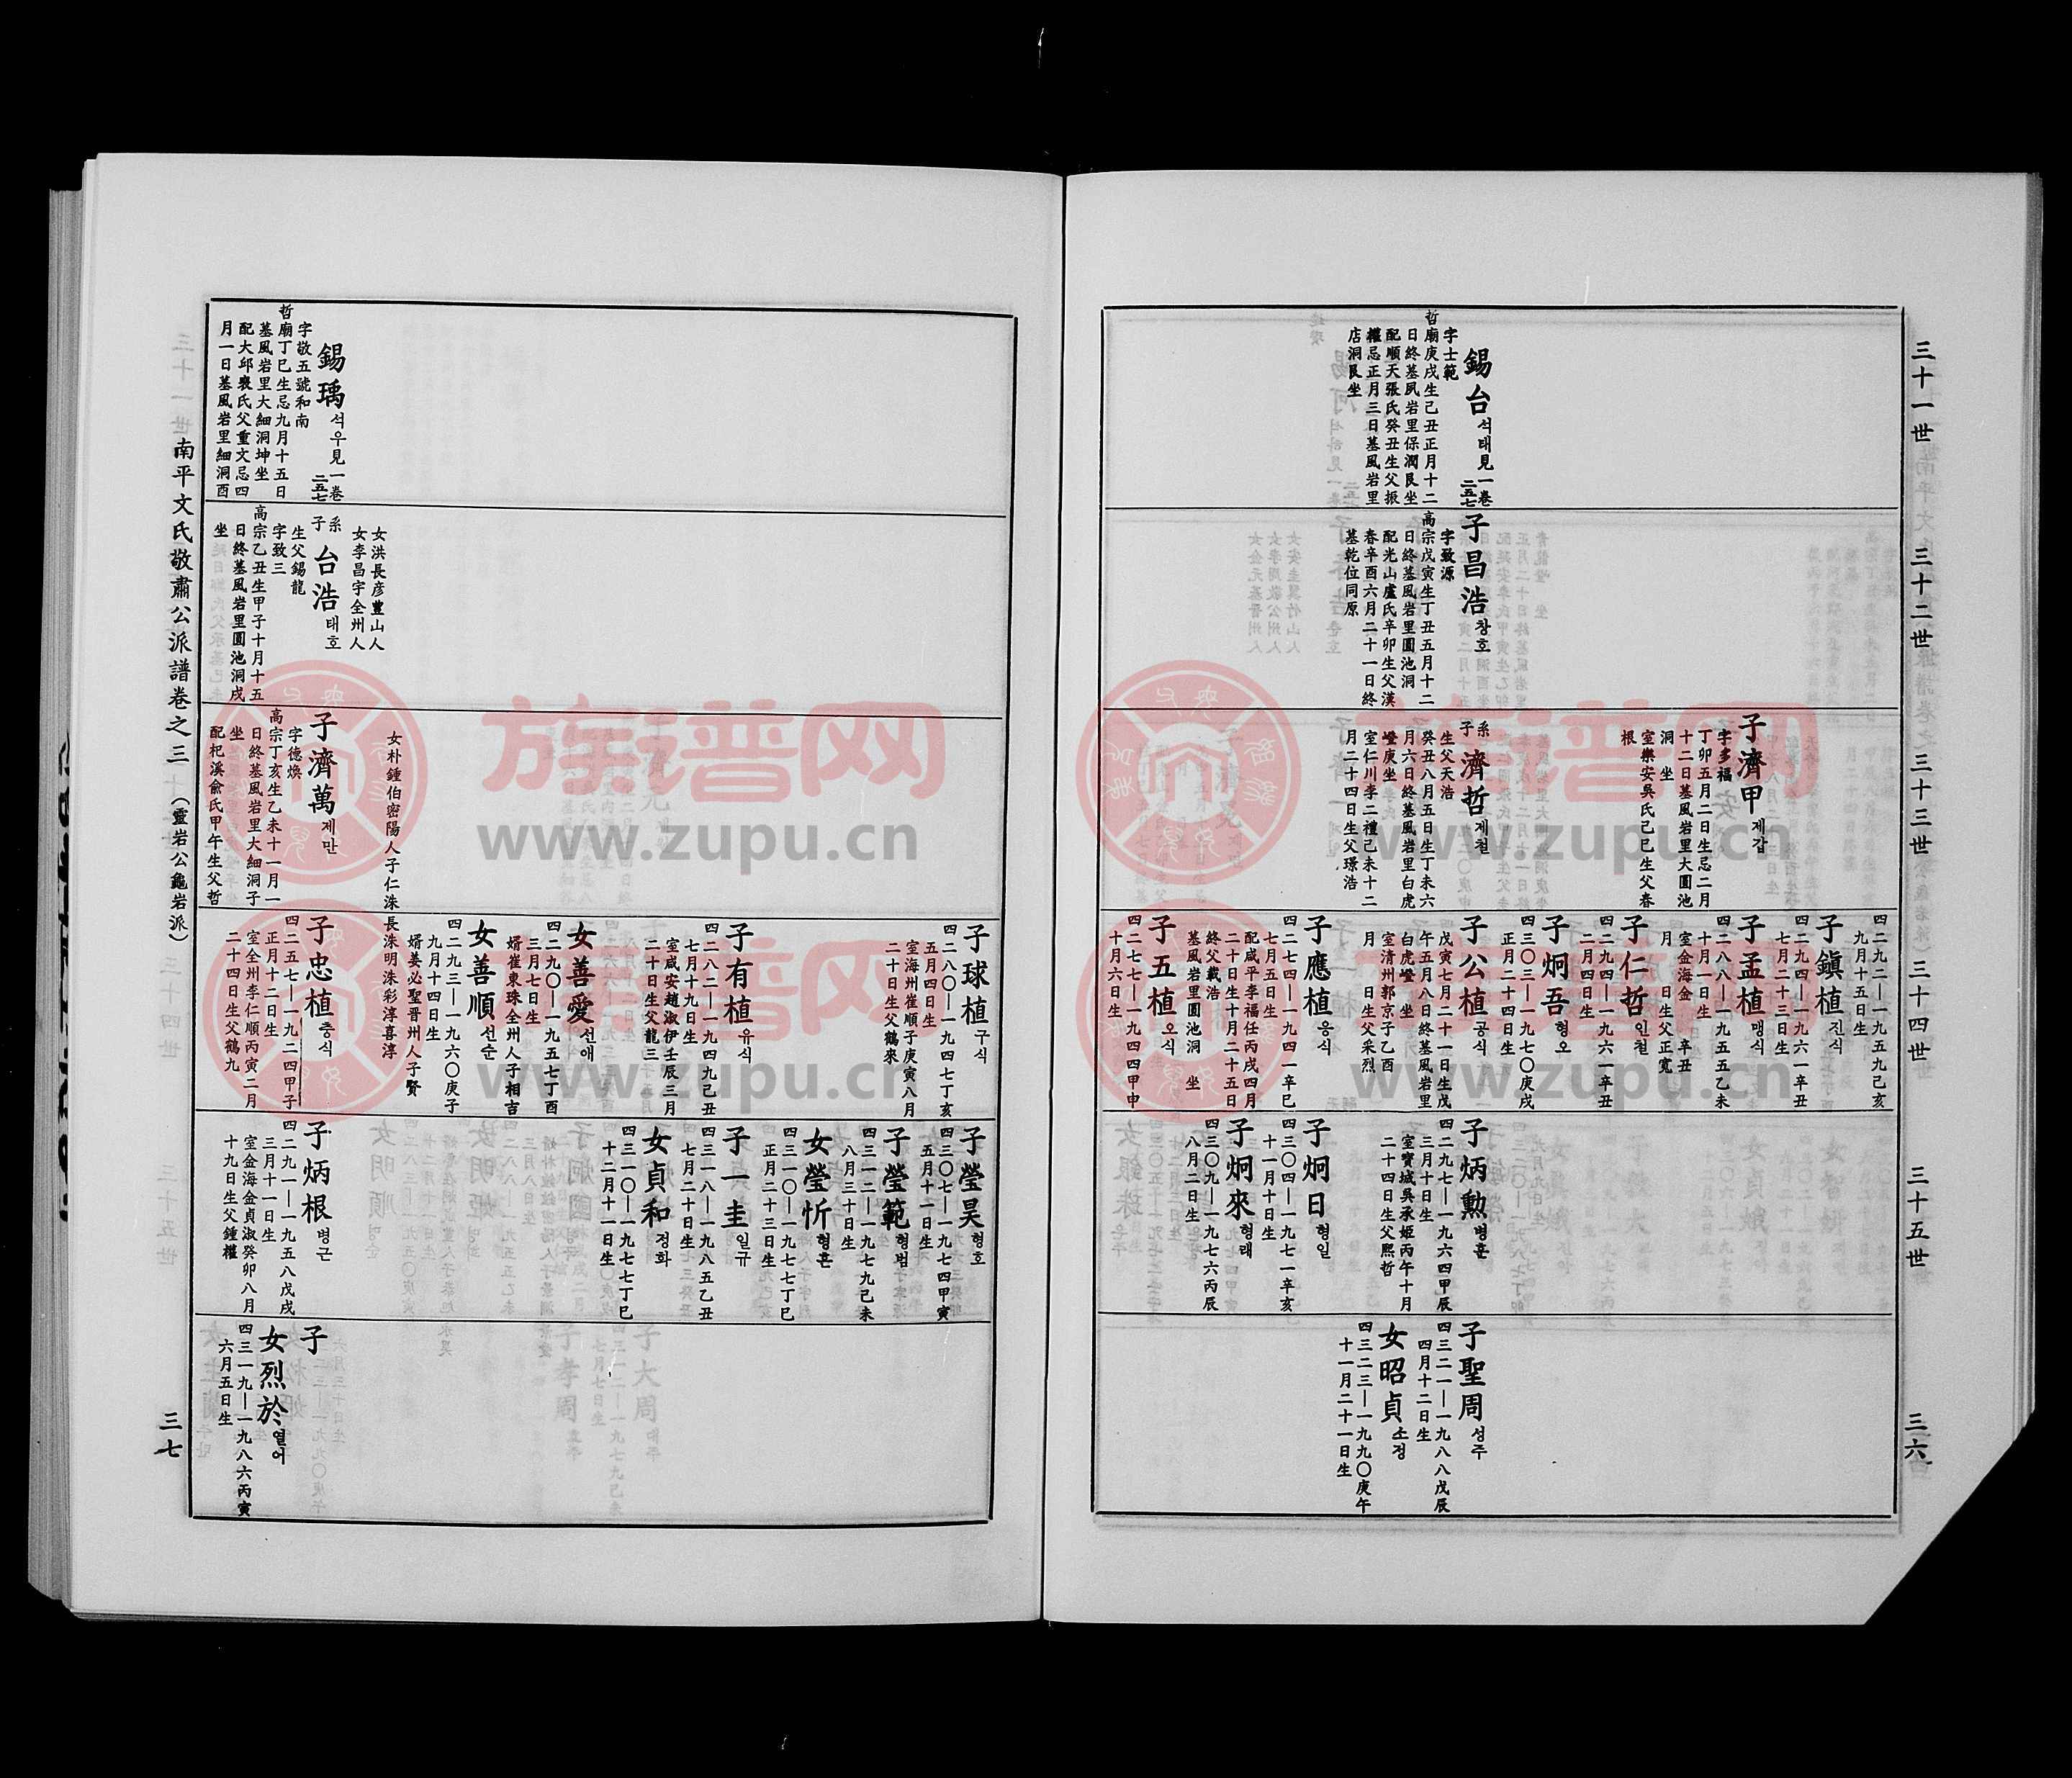 三十一世
三十二世
三十三世
三十四世
三十五世
三六
錫台 석태 見一卷二五七
字士範
哲廟庚戌生己丑正月十二
日終墓夙岩里保潤艮坐
配順天張氏癸丑生父振
權忌正月三日墓風岩里
店洞艮坐
子昌浩 창호
字致源
高宗戊寅生丁丑五月十二
日終墓風岩里圓池洞
配光山盧氏辛卯生父漢
春辛酉六月二十一日終
墓乾位同原
子濟甲 제갑
字多福
丁卯五月二日生忌二月
十二日墓風岩里大圓池
洞 坐
室樂安吳氏己巳生父春
根
系子 濟哲 제철
生父天浩
癸丑八月五日生丁未六
月六日終墓風岩里白虎
嶝庚坐
室仁川李二禮己未十二
月二十四日生父璟浩
四二九二—一九五九己亥
九月十五日生
子鎭植 진식
四二九四—一九六一辛丑
七月二十三日生
子孟植 맹식
四二八八—一九五五乙未
十月一日生
室金海金 辛丑
月 日生父正寬
子仁哲 인철
四二九四—一九六一辛丑
二月四日生
子炯吾 형오
四三〇三—一九七〇庚戌
正月二十四日生
子公植 공식
戊寅七月二十一日生戊
午五月八日終墓風岩里
白虎嶝 坐
室清州郭京子乙酉
月 日生父采烈
子應植 응식
四二七四—一九四一辛巳
七月五日生
配咸平李福任丙戌四月
二十日生十月二十五日
終父載浩
墓風岩里圓池洞 坐
子五植 오식
四二七七—一九四四甲申
十月六日生
子炳勳 병훈
四二九七—一九六四甲辰
三月十日生
室寶城吳承姬丙午十月
二十四日生父熙哲
子炯日 형일
四三〇四—一九七一辛亥
十一月十日生
子炯來 형래
四三〇九—一九七六丙辰
八月二日生
子聖周 성주
四三二一—一九八八戊辰
四月十二日生
女昭貞 소정
四三二三—一九九〇庚午
十一月二十一日生
錫瑀 석우 見一卷二五七
字敬五號和南
哲廟丁巳生忌九月十五日
墓風岩里大細洞坤坐
配大邱裵氏父重文忌四
月一日墓風岩里細洞酉
女洪長彦豊山人
女李昌宇全州人
系子 台浩 태호
生父錫龍
字致三
高宗乙丑生甲子十月十五
日終墓風岩里圓池洞戌
坐
女朴鍾伯密陽人子仁洙長洙明洙彩淳喜淳
子濟萬 제만
字德煥
高宗丁亥生乙未十一月一
日終墓風岩里大細洞子
坐
配杞溪俞氏甲午生父哲
子球植 구식
四二八〇—一九四七丁亥
五月四日生
室海州崔順子庚寅八月
二十日生父鶴來
子有植 유식
四二八二—一九四九己丑
七月十九日生
室咸安趙淑伊壬辰三月
二十日生父龍三
女善愛 선애
四二九〇—一九五七丁酉
三月七日生
婿崔東珠全州人子相吉
女善順 선순
四二九三—一九六〇庚子
九月十四日生
婿姜必聖晋州人子賢
子忠植 충식
四二五七—一九二四甲子
正月十二日生
室全州李仁順丙寅二月
二十四日生父鶴九
子瑩昊 형호
四三〇七—一九七四甲寅
五月十一日生
子瑩範 형범
四三一二—一九七九己未
八月三十日生
女瑩忻 형흔
四三一〇—一九七七丁巳
正月二十三日生
子一圭 일규
四三一八—一九八五乙丑
七月二十日生
女貞和 정화
四三一〇—一九七七丁巳
十二月十一日生
子炳根 병근
四二九一—一九五八戊戌
三月十一日生
室金海金貞淑癸卯八月
十九日生父鍾權
子
女烈於 열어
四三一九—一九八六丙寅
六月五日生
南平文氏敬肅公派譜卷之三 (靈岩公龜岩派)
三七
族谱网
www.zupu.cn
族谱网
www.zupu.cn
族谱网
www.zupu.cn
族谱网
www.zupu.cn